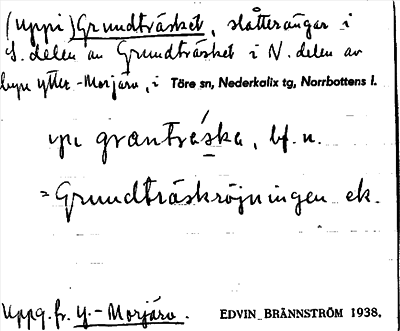 (Uppi) Grundträsket, slåtterängar i
S. delen av Grundträsket i N. delen av
byn Ytter-Morjärv, i Töre sn, Nederkalix tg, Norrbottens l.
grœntrǻska, bf. n.
= Grundträskröjningen ek.
Uppg. fr. Y.-Morjärv. EDVIN BRÄNNSTRÖM 1938.